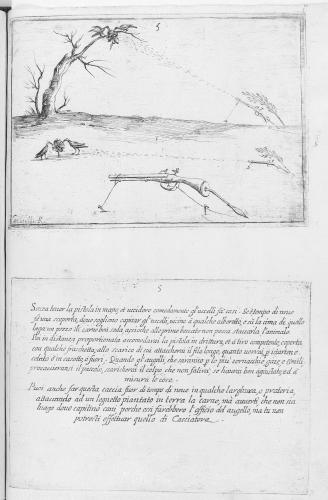 5
5
Senza tener la pistola in mano, et uccidere comodamente gl'uccelli fa così. Se è tempo di neue
ò in una scoperta, doue sogliono capitar gl'uccelli, uicino à qualche alberetto, e sù la cima de quello
lega un pezzo di carne ben soda, acciochè alle prime beccate non possa staccarla l'animale.
Poi in distanza proportionata accomodarai la pistola in drittura, et à tiro competente, coperta
con qualche fraschetta, allo scaricio di cui attaccherai il filo longo, quanto uorrai, e starten'e
celato ò in casotto, ò fuori. Quando gl'augelli, che saranno p lo più cornachie, gaze, e simili
procureranno il piccolo, scaricherai il colpo, che non falirà, se hauerai ben agiustate, ed à
misura le cose.
Puoi anche far questa caccia fuor di tempo di neue in qualche largheria, o prateria
attaccando ad un legnetto piantato in terra la carne, ma auuerti, che non sia
luogo doue capitino cani, perche essi farebbero l'officio dell'augello, ma tu non
potresti effettuar quello di Cacciatore.